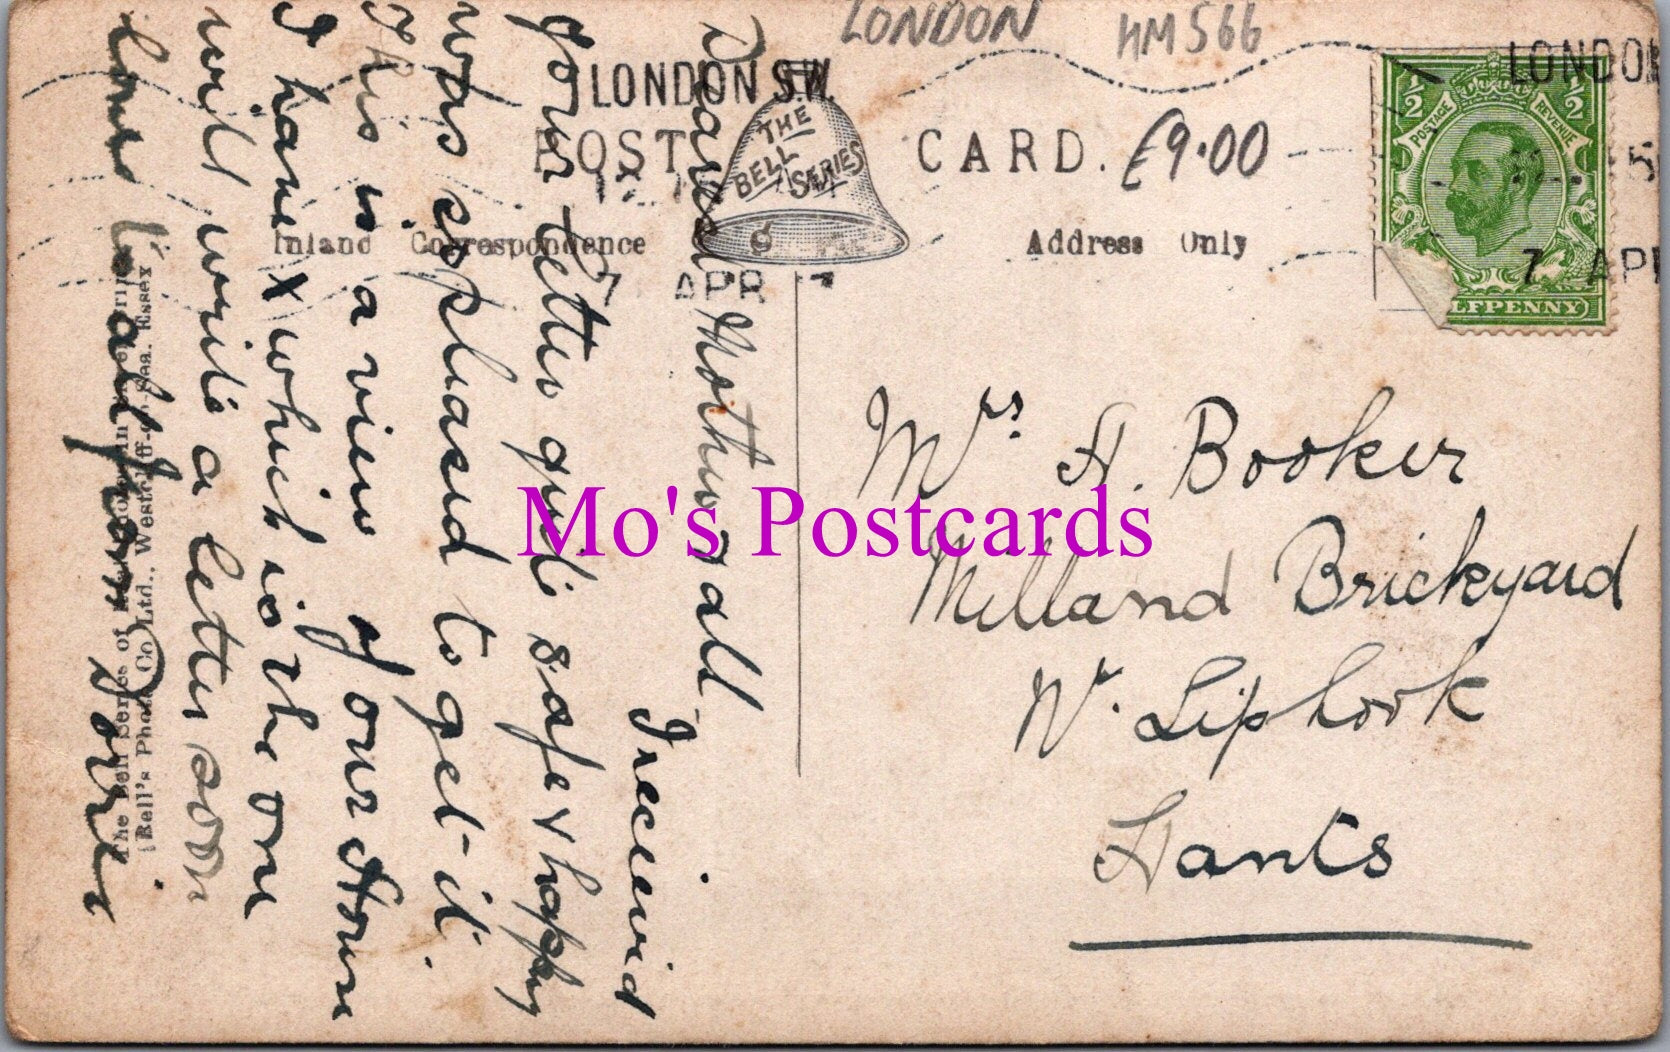 LONDON HM566
LONDON S.W.
THE
BELL
SERIES
POST CARD. £9.00
Inland Correspondence Address Only
7 APR
1/2 1/2
POSTAGE REVENUE
LFPENNY
LONDO
7 AP
Dearest Mother & all
I received
your letter quite safe & happy
was so pleased to get it.
This is a view of our House
I have X which is the one
will write a letter soon
love to all from
Mrs. H. Booker
Milland Brickyard
Nr. Liphook
Hants
The Bell Series of
(Bell's Photo Co Ltd., Westcliff-on-Sea. Essex
Mo's Postcards